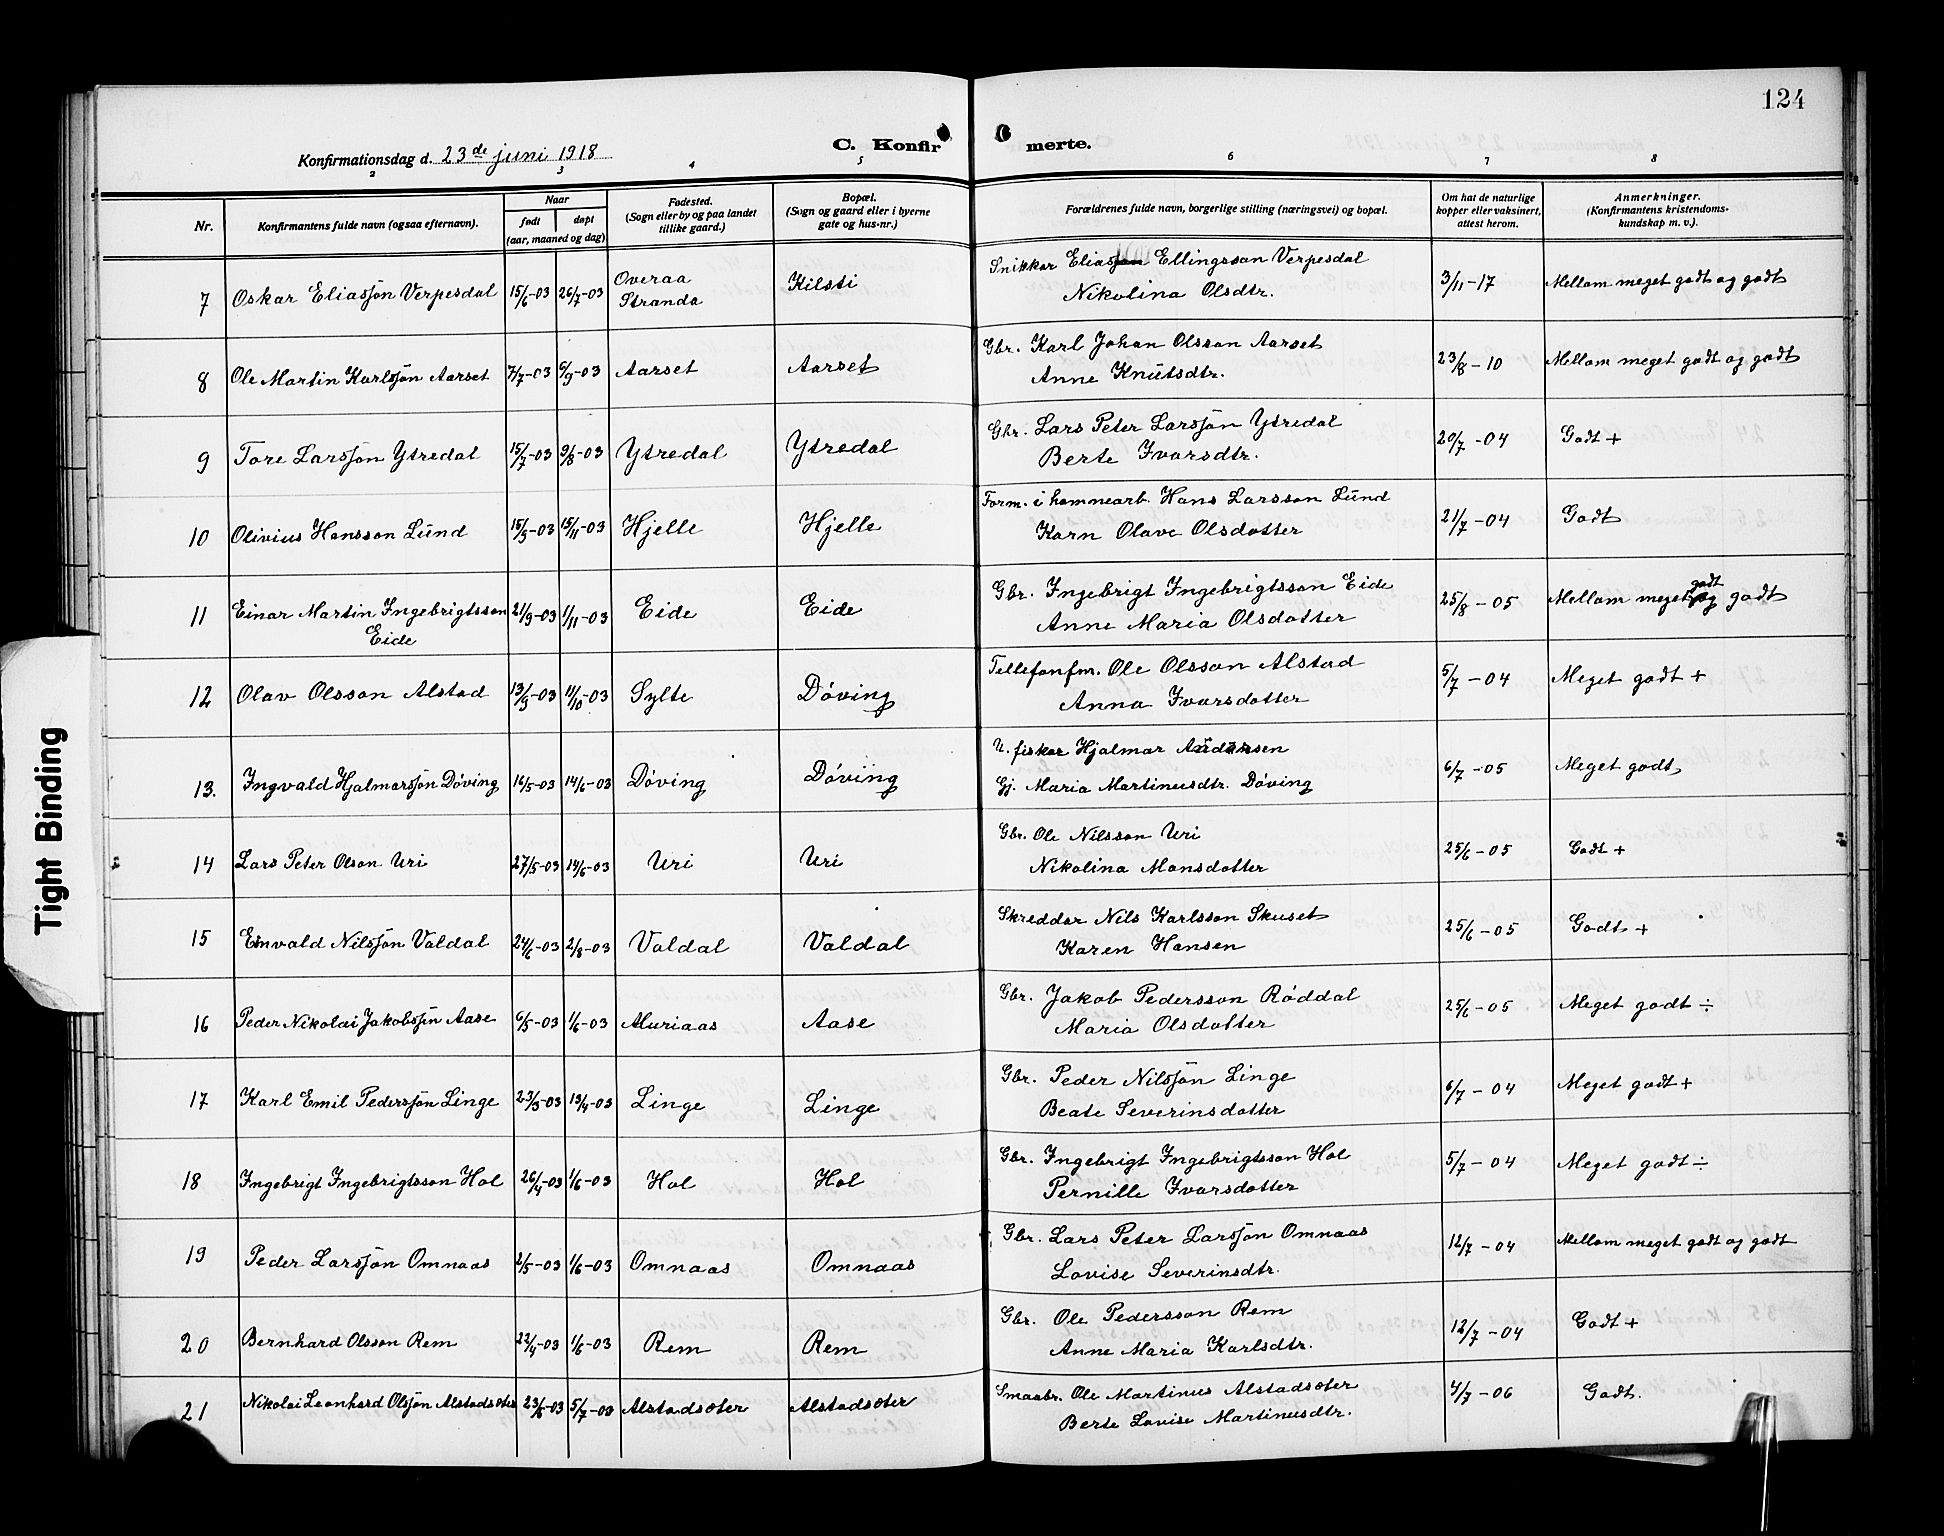 124
C. Konfirmerte.
Konfirmationsdag d. 23de juni 1918
2 3 4 5 6 7 8
Nr. | Konfirmantens fulde navn (ogsaa efternavn). | Naar født døpt (aar, maaned og dag) | Fødested. (Sogn eller by og paa landet tillike gaard.) | Bopæl. (Sogn og gaard eller i byerne gate og hus-nr.) | Forældrenes fulde navn, borgerlige stilling (næringsvei) og bopæl. | Om hat de naturlige kopper eller vaksinert, attest herom. | Anmerkninger. (Konfirmantens kristendomskundskap m. v.).
7 | Oskar Eliasson Verpesdal | 15/6-03 | 26/7-03 | Overaa Stranda | Kilsti | Snikkar Elias Ellingsson Verpesdal Nikolina Olsdtr. | 3/11-17 | Mellom meget godt og godt
8 | Ole Martin Karlsson Aarset | 7/7-03 | 6/9-03 | Aarset | Aarset | Gbr. Karl Johan Olsson Aarset Anne Knutsdtr. | 23/8-10 | Mellom meget godt og godt
9 | Tore Larsson Ytredal | 15/7-03 | 9/8-03 | Ytredal | Ytredal | Gbr. Lars Peter Larsson Ytredal Berte Ivarsdtr. | 20/7-04 | Godt +
10 | Olivius Hansson Lund | 15/5-03 | 15/11-03 | Hjelle | Hjelle | Form. i hamnearb. Hans Larsson Lund Karn Olave Olsdotter | 21/7-04 | Godt
11 | Einar Martin Ingebrigtsson Eide | 21/9-03 | 1/11-03 | Eide | Eide | Gbr. Ingebrigt Ingebrigtsson Eide Anne Maria Olsdotter | 25/8-05 | Mellom meget godt og godt
12 | Olav Olsson Alstad | 13/9-03 | 11/10-03 | Sylte | Døving | Tellefonfm. Ole Olsson Alstad Anna Ivarsdotter | 5/7-04 | Meget godt +
13. | Ingvald Hjalmarsson Døving | 16/5-03 | 14/6-03 | Døving | Døving | U. fiskar Hjalmar Andersen Gj. Maria Martinusdtr. Døving | 6/7-05 | Meget godt
14 | Lars Peter Olson Uri | 27/5-03 | 14/6-03 | Uri | Uri | Gbr. Ole Nilsson Uri Nikolina Monsdotter | 25/6-05 | Godt +
15 | Einvald Nilsson Valdal | 24/6-03 | 2/8-03 | Valdal | Valdal | Skreddar Nils Karlsson Skuset Karen Hansen | 25/6-05 | Godt +
16 | Peder Nikolai Jakobsson Aase | 6/5-03 | 1/6-03 | Muriaas | Aase | Gbr. Jakob Pedersson Røddal Maria Olsdotter | 25/6-05 | Meget godt ÷
17 | Karl Emil Pedersson Linge | 23/3-03 | 13/4-03 | Linge | Linge | Gbr. Peder Nilsson Linge Beate Severinsdotter | 6/7-04 | Meget godt +
18 | Ingebrigt Ingebrigtsson Hol | 26/4-03 | 1/6-03 | Hol | Hol | Gbr. Ingebrigt Ingebrigtsson Hol Pernille Ivarsdotter | 5/7-04 | Meget godt ÷
19 | Peder Larsson Omnaas | 2/5-03 | 1/6-03 | Omnaas | Omnaas | Gbr. Lars Peter Larsson Omnaas Lovise Severinsdtr. | 12/7-04 | Mellom meget godt og godt
20 | Bernhard Olsson Rem | 22/4-03 | 1/6-03 | Rem | Rem | Gbr. Ole Pedersson Rem Anne Maria Karlsdtr. | 12/7-04 | Godt +
21 | Nikolai Leonhard Olsson Alstadsæter | 23/6-03 | 5/7-03 | Alstadsæter | Alstadsæter | Smaabr. Ole Martinus Alstadsæter Berte Lovise Martinusdtr. | 4/7-06 | Godt.
Tight Binding